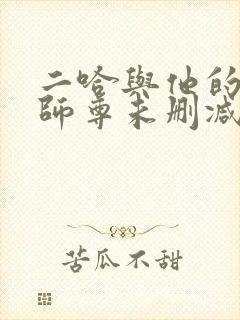 二哈與他的
師尊未刪減
苦瓜不甜